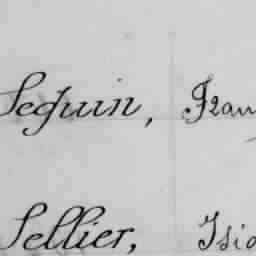 Seguin, Fran
Sellier, Isid